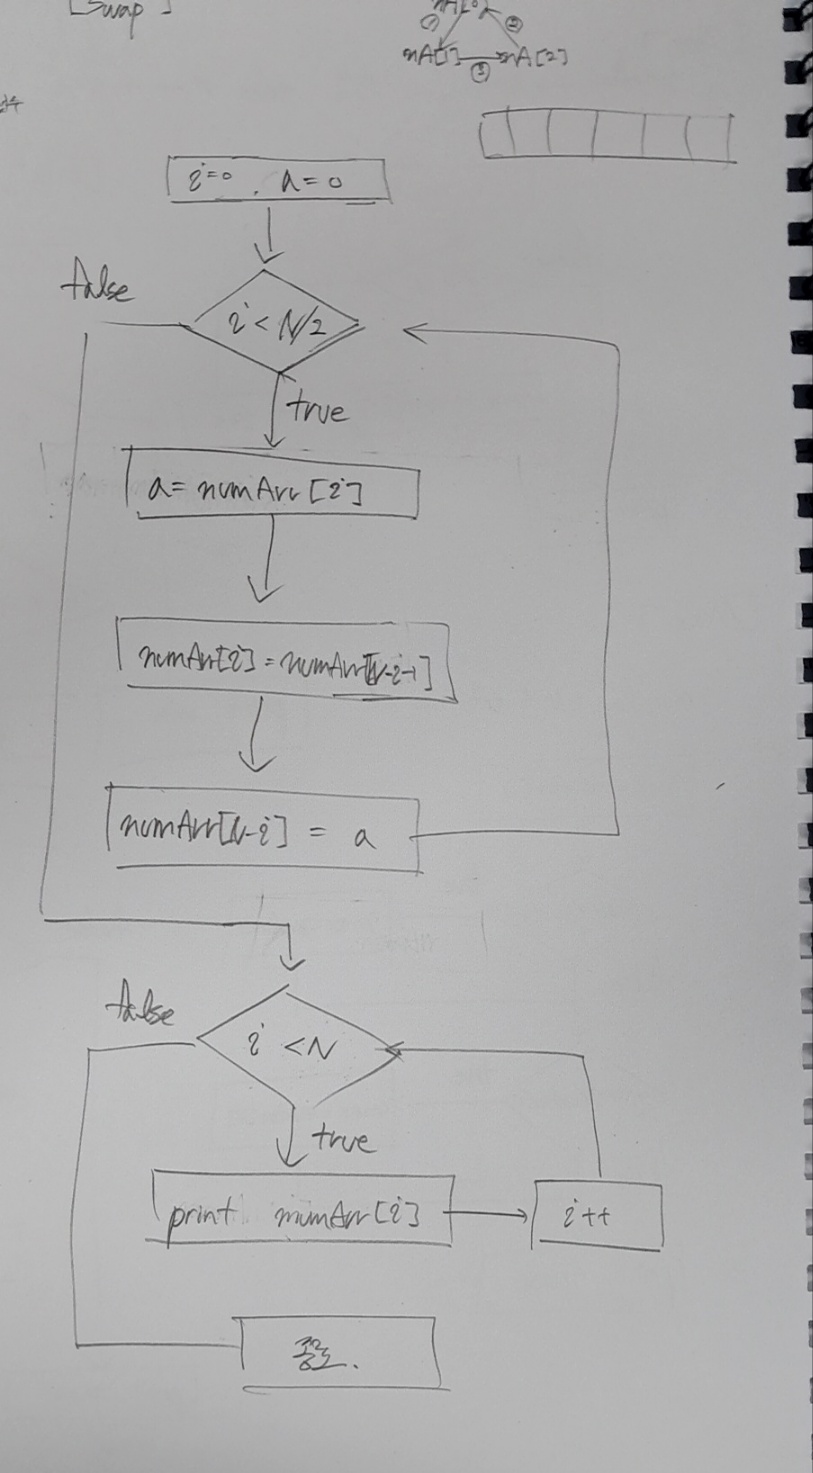 [Swap]
① ②
nA[1] nA[2]
③
i=0 , a=0
false
i < N/2
true
a = numArr [i]
numArr[i] = numArr[N-i-1]
numArr[N-i] = a
false
i < N
true
print numArr[i]
i++
종료.